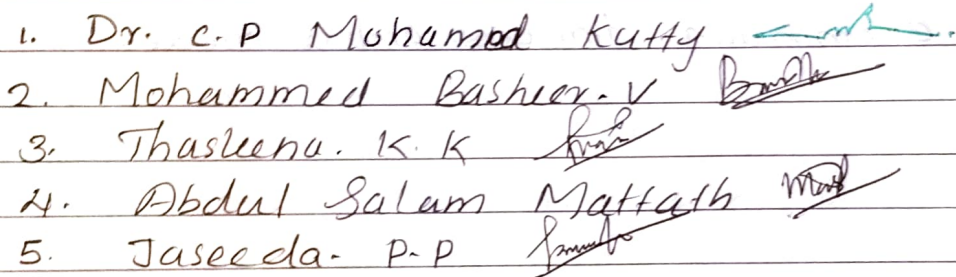 1. Dr. C. P Mohamed Kutty
2. Mohammed Basheer. V
3. Thasleena. K. K
4. Abdul Salam Mattath
5. Jaseeda- P-P